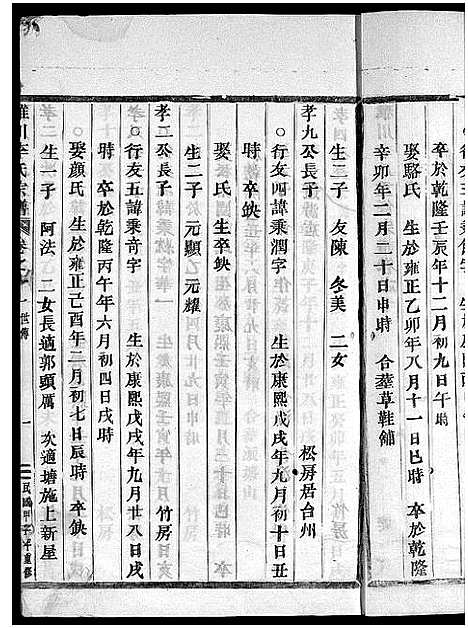 卒於乾隆壬辰年十二月初九日午時
娶駱氏 生於雍正乙卯年八月十一日巳時 卒於乾隆
辛卯年二月二十日申時 合葬草鞋舖
生二子 友陳 冬美 二女
孝九公長子 松房居台州
○行友四諱乘潤字 生於康熙戊戌年九月初十日丑
時 卒缺
娶氏 生卒缺
生二子 元顯 元耀
孝二公長子 竹房
○行友五諱乘奇字 生於康熙戊戌年九月廿八日戌
時 卒於乾隆丙午年六月初四日戌時
娶顏氏 生於雍正己酉年二月初七日辰時 卒缺
生一子 阿法 二女長適郭頭厲 次適塘施上新屋
川李氏宗譜 卷 一 民國甲子年重修